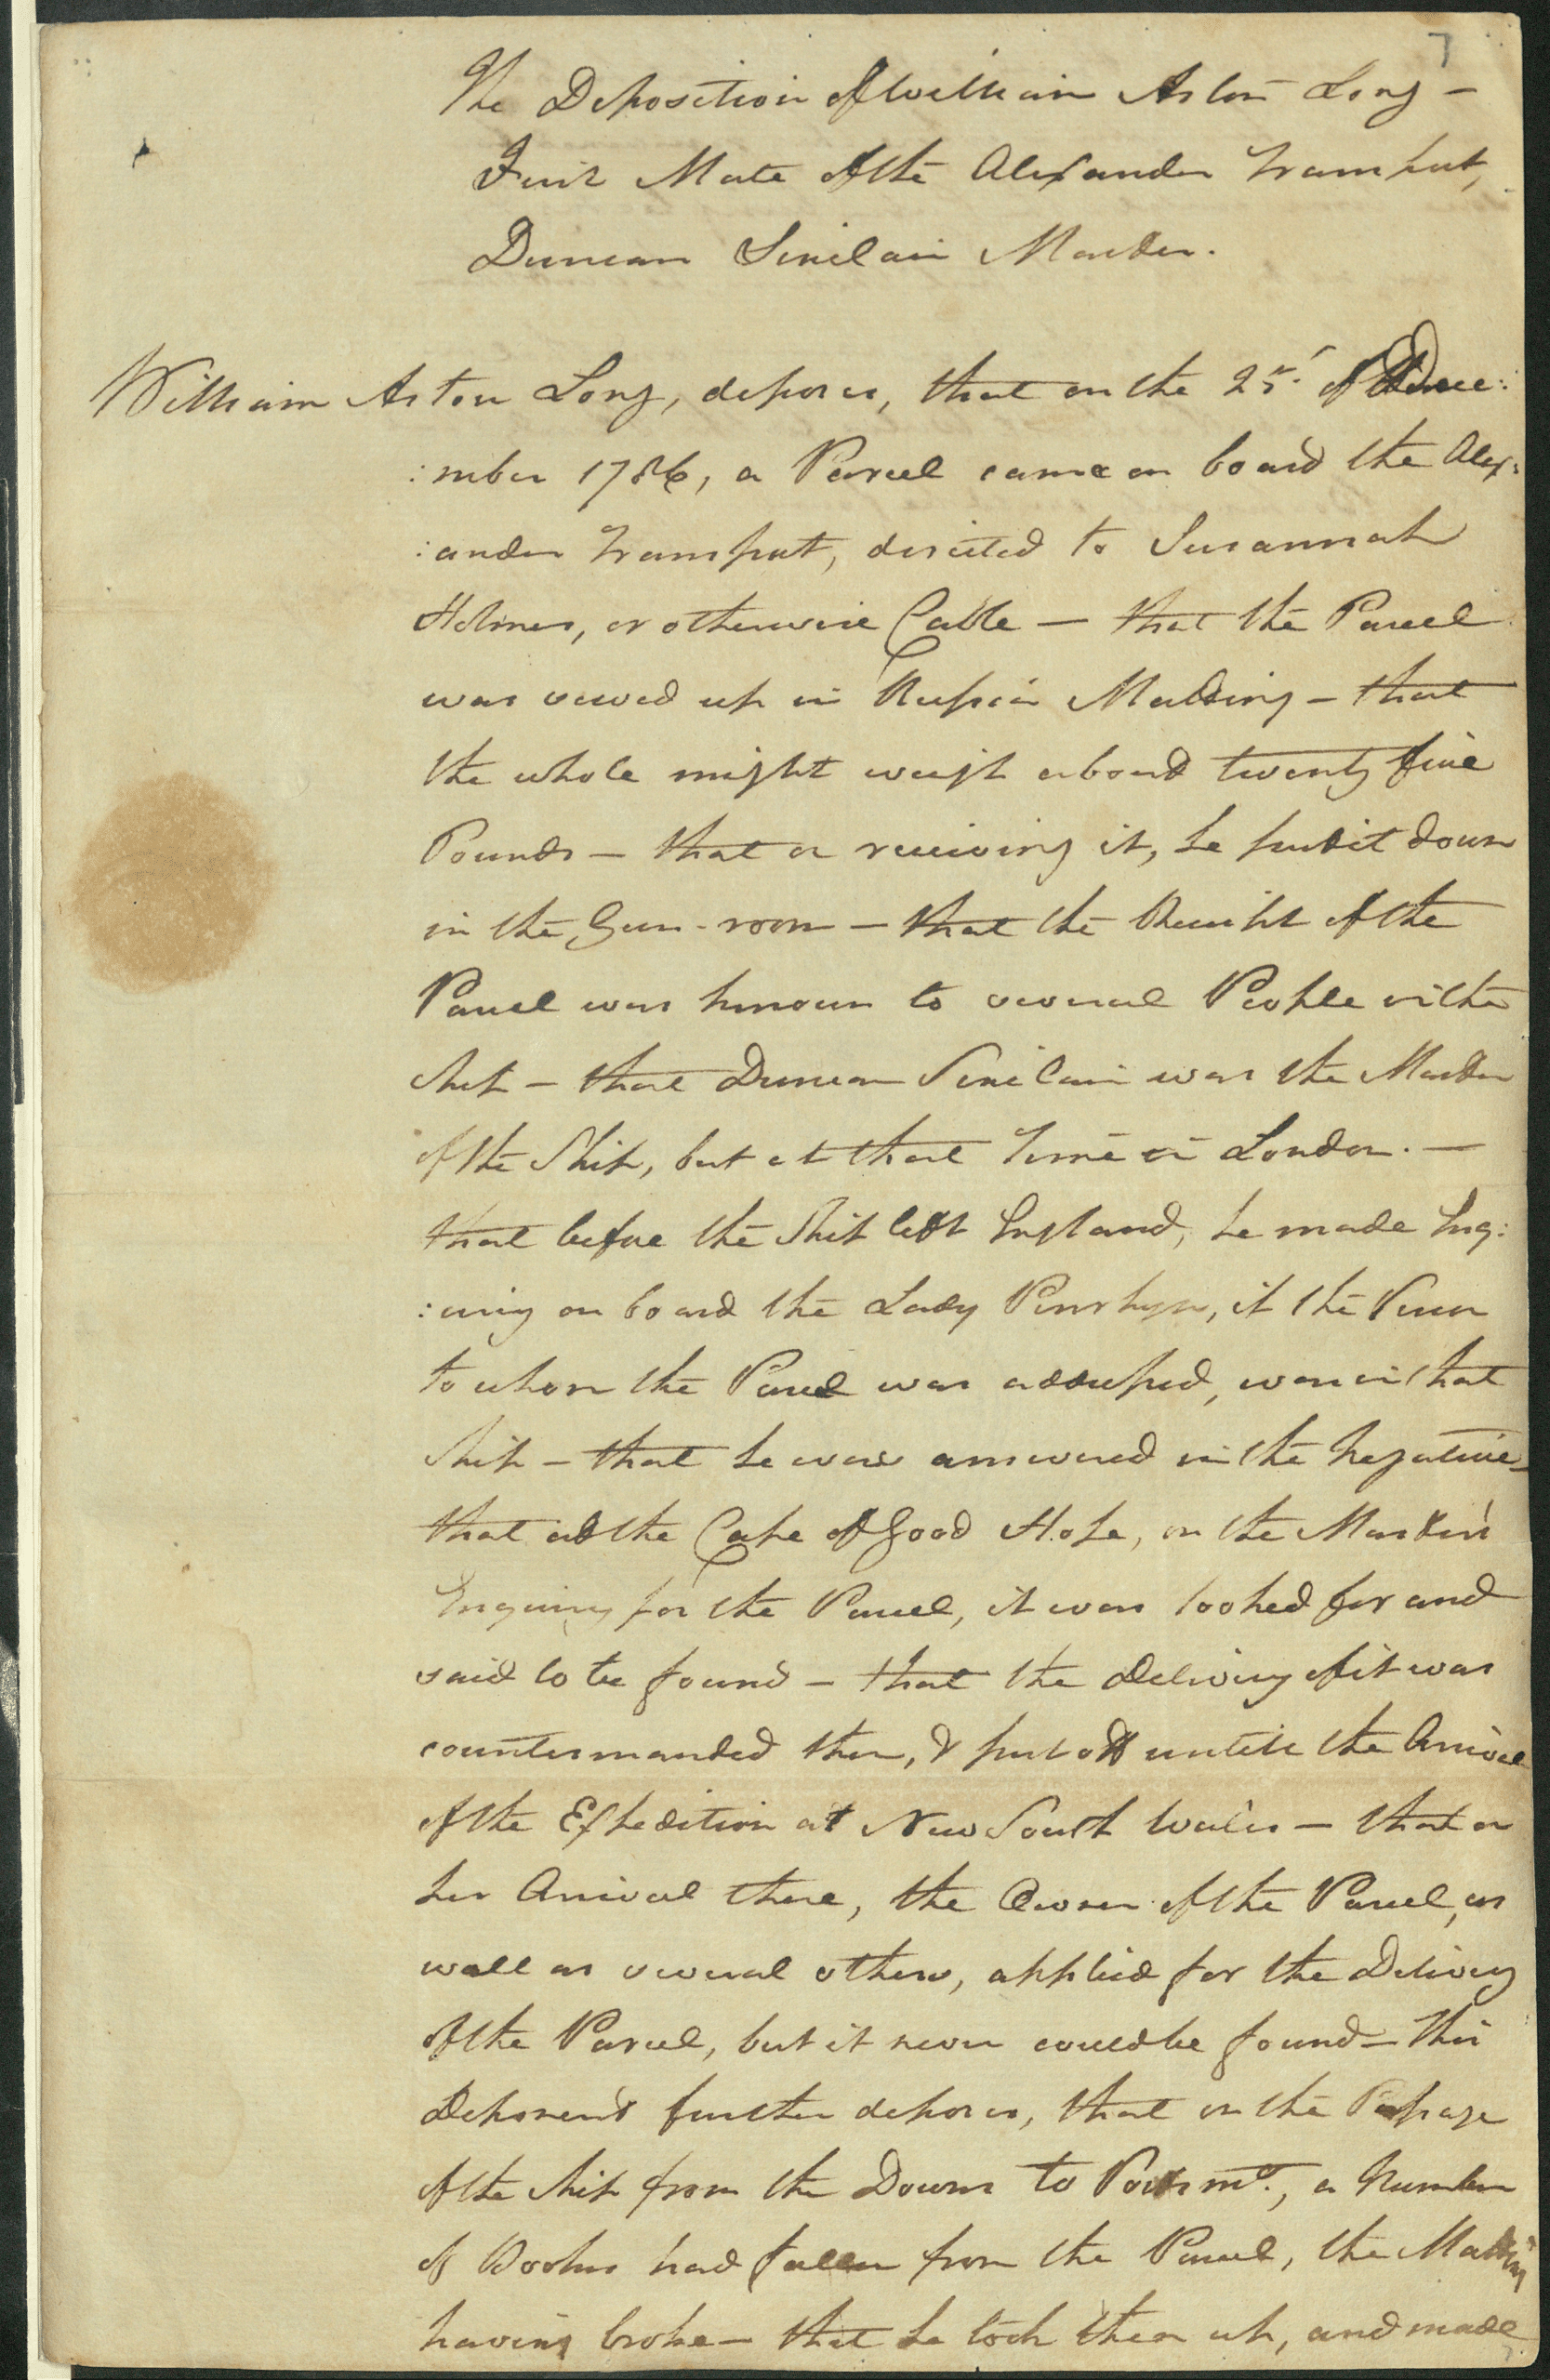 7
The Deposition of William Aston Long –
First Mate of the Alexander Transport,
Duncan Sinclair Master.
William Aston Long, deposes, that on the 25. of Dece:
:mber 1786, a Parcel came on board the Alex:
:ander Transport, directed to Susannah
Holmes, or otherwise Cable – that the Parcel
was sewed up in Russia Matting – that
the whole might weigh about twenty five
Pounds – that on receiving it, he put it down
in the Gun-room – that the Receipt of the
Parcel was known to several People in the
Ship – that Duncan Sinclair was the Master
of the Ship, but at that Time in London. –
that before the Ship left England, he made Enq:
:uiry on board the Lady Penrhyn, if the Person
to whom the Parcel was addressed, was in that
Ship – that he was answered in the Negative –
that at the Cape of Good Hope, on the Master's
Enquiry for the Parcel, it was looked for and
said to be found – that the Delivery of it was
countermanded then, & put off untill the Arrival
of the Expedition at New South Wales – that on
her Arrival there, the Owner of the Parcel, as
well as several others, applied for the Delivery
of the Parcel, but it never could be found – this
Deponent further deposes, that on the Passage
of the Ship from the Downs to Portsmo., a Number
of Books had fallen from the Parcel, the Matting
having broke – that he took them up, and made